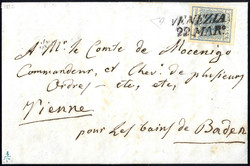 VENEZIA
22 MAR.
A Mr. le Comte de Mocenigo
Commandeur, et Chev. de plusieurs
Ordres — etc, etc
Vienne
pour les bains de Baden